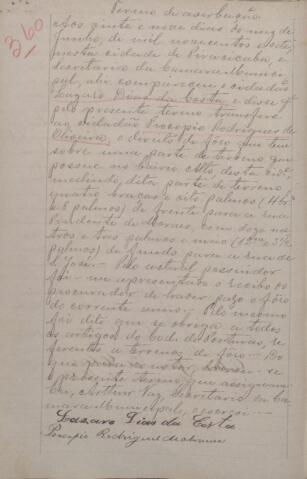 360
Termo de averbação
Aos vinte e nove dias do mez de
Junho, de mil novecentos e sete,
nesta cidade de Piracicaba, e
Secretaria da Camara Munici-
pal, ahi compareceu o cidadão
Lazaro Dias da Costa, e disse q'
pelo presente termo transfere
ao cidadão Procopio Rodrigues de
Oliveira, o direito de fôro que tem
sobre uma parte de terreno que
possue no bairro Alto, desta cid.e
medindo, dita parte de terreno
quatro braças e oito palmos (4 br
e 8 palmos) de frente para a rua
Prudente de Moraes, com doze me-
tros e tres palmos e meio
palmos) de fundo para a rua de
S. José. Pelo actual possuidor
foi-me apresentado o recibo do
procurador de haver pago o fôro
do corrente anno. Pelo mesmo
foi dito que se obriga a todos
os artigos do Cod. de Posturas, re-
ferentes a terrenos de fôro. Do
que para constar, lavrou-se
o presente termo que assignam.
Eu, Arthur Vaz, Secretario da Ca-
mara Municipal, escrevi.
Lazaro Dias da Costa
Procopio Rodrigues de Oliveira